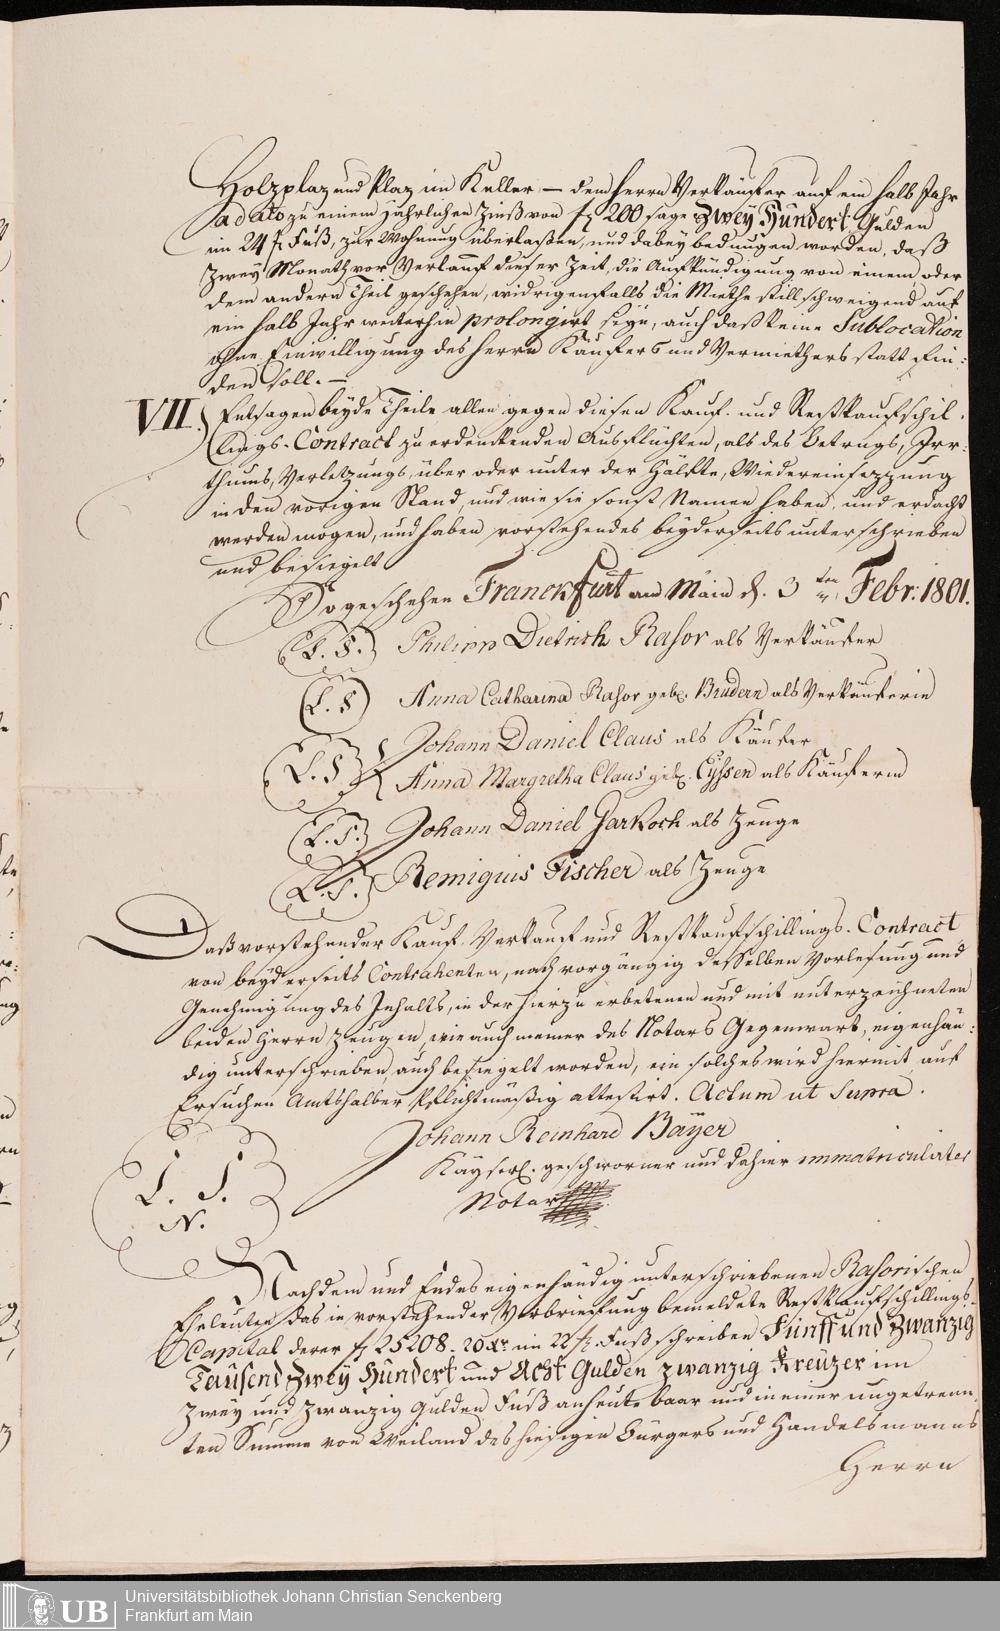 Holzplaz und Plaz im Keller – dem Herrn Verkäufer auf ein halb Jahr
a dato zu einem jährlichen Zinß von fl 200 sage Zwey Hundert Gulden
im 24 f. Fuß, zur Wohnung überlaßen, und dabey bedungen worden, daß
Zwey Monath vor Verlauf dieser Zeit, die Aufkündigung von einem, oder
dem andern Theil geschehen, widrigenfalls die Miethe stillschweigend auf
ein halb Jahr weiterhin prolongirt seyn, auch daß keine Sublocation
ohne Einwilligung des Herrn Käufers und Vermiethers statt fin:
den soll. –
VII.) Entsagen beyde Theile allen gegen diesen Kauf- und Restkaufschil-
lings-Contract zu erdenckenden Ausflüchten, als des Betrugs, Irr-
thums, Verletzungs, über oder unter der Hälfte, Wiedereinsezzung
in den vorigen Stand, und wie sie sonst Namen haben, und erdacht
werden mögen, und haben vorstehendes beyderseits unterschrieben
und besiegelt
So geschehen Franckfurt am Main d. 3 ten Febr: 1801.
(L. S.) Philipp Dietrich Rasor als Verkäufer
(L. S) Anna Catharina Rasor geb. Brudern als Verkäuferin
(L. S) { Johann Daniel Claus als Käufer
Anna Margretha Claus geb. Eyssen als Käuferin
(L. S.) Johann Daniel Garkoch als Zeuge
(L. S.) Remiguis Fischer als Zeuge
Daß vorstehender Kauf- Verkauf und Restkaufschillings-Contract
von beyderseits Contrahenten, nach vorgängig desselben Vorlesung und
Genehmigung des Inhalts, in der hierzu erbetenen und mit unterzeichneten
beiden Herrn Zeugen, wie auch meiner des Notars Gegenwart, eigenhän:
dig unterschrieben, auch besiegelt worden, ein solches wird hiermit auf
Ersuchen Amtshalber Pflichtmäßig attestirt. Actum ut Supra.
Johann Reinhard Bäyer
Kayserl. geschworner und dahier immatriculirter
Notar
L. S.
N.
Nachdem uns Endes eigenhändig unterschriebenen Rasorischen
Eheleuten, das in vorstehender Verbriefung bemeldete Restkaufschillings-
Capital derer fl 25208. 20 Xr. im 22 fl. Fuß schreiben Fünff und Zwanzig
Tausend Zwey Hundert und Acht Gulden zwanzig Kreuzer im
zwey und zwanzig Gulden Fuß anheute baar und in einer ungetrenn-
ten Summe von Weiland des hiesigen Bürgers und Handelsmanns
Herrn
UB
Universitätsbibliothek Johann Christian Senckenberg
Frankfurt am Main